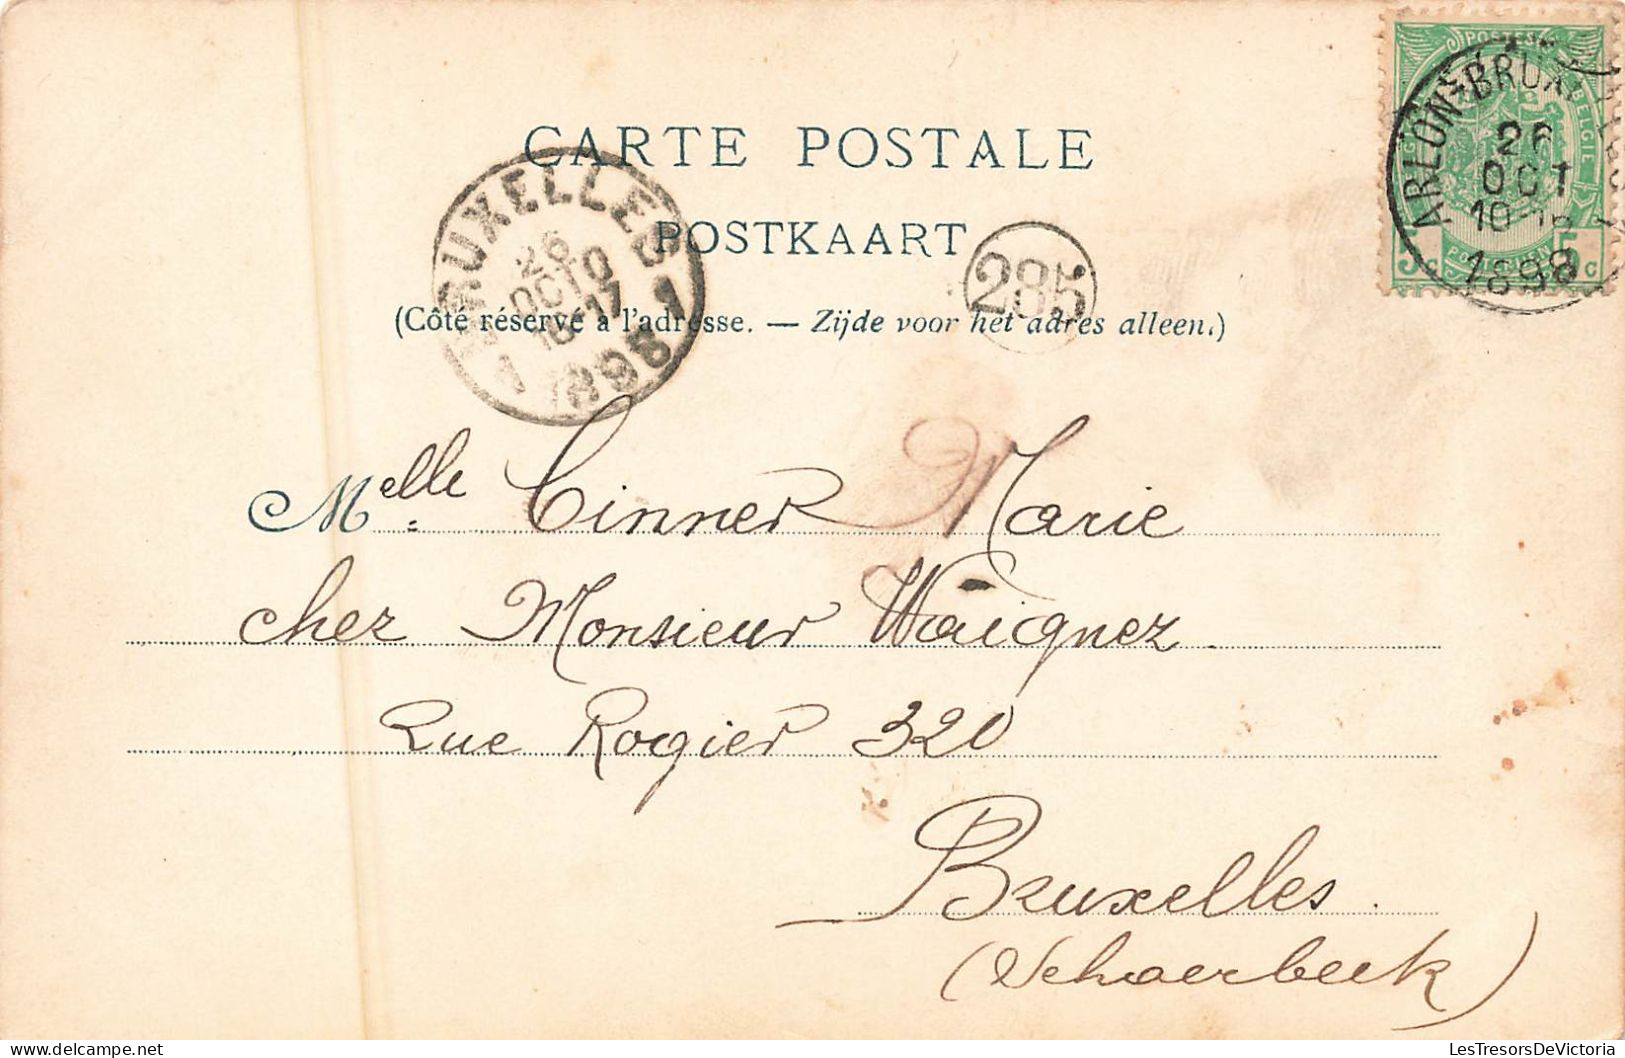 CARTE POSTALE
POSTKAART
(Côté réservé à l'adresse. — Zijde voor het adres alleen.)
BRUXELLES 1
26
OCTO
16-17
1898
285
POSTES
BELGIE
5 c 5 c
ARLON-BRUX.
26
OCT
10-
1898
Melle Cinner Marie
chez Monsieur Waignez
Rue Rogier 320
Bruxelles.
(Schaerbeek)
LesTresorsDeVictoria